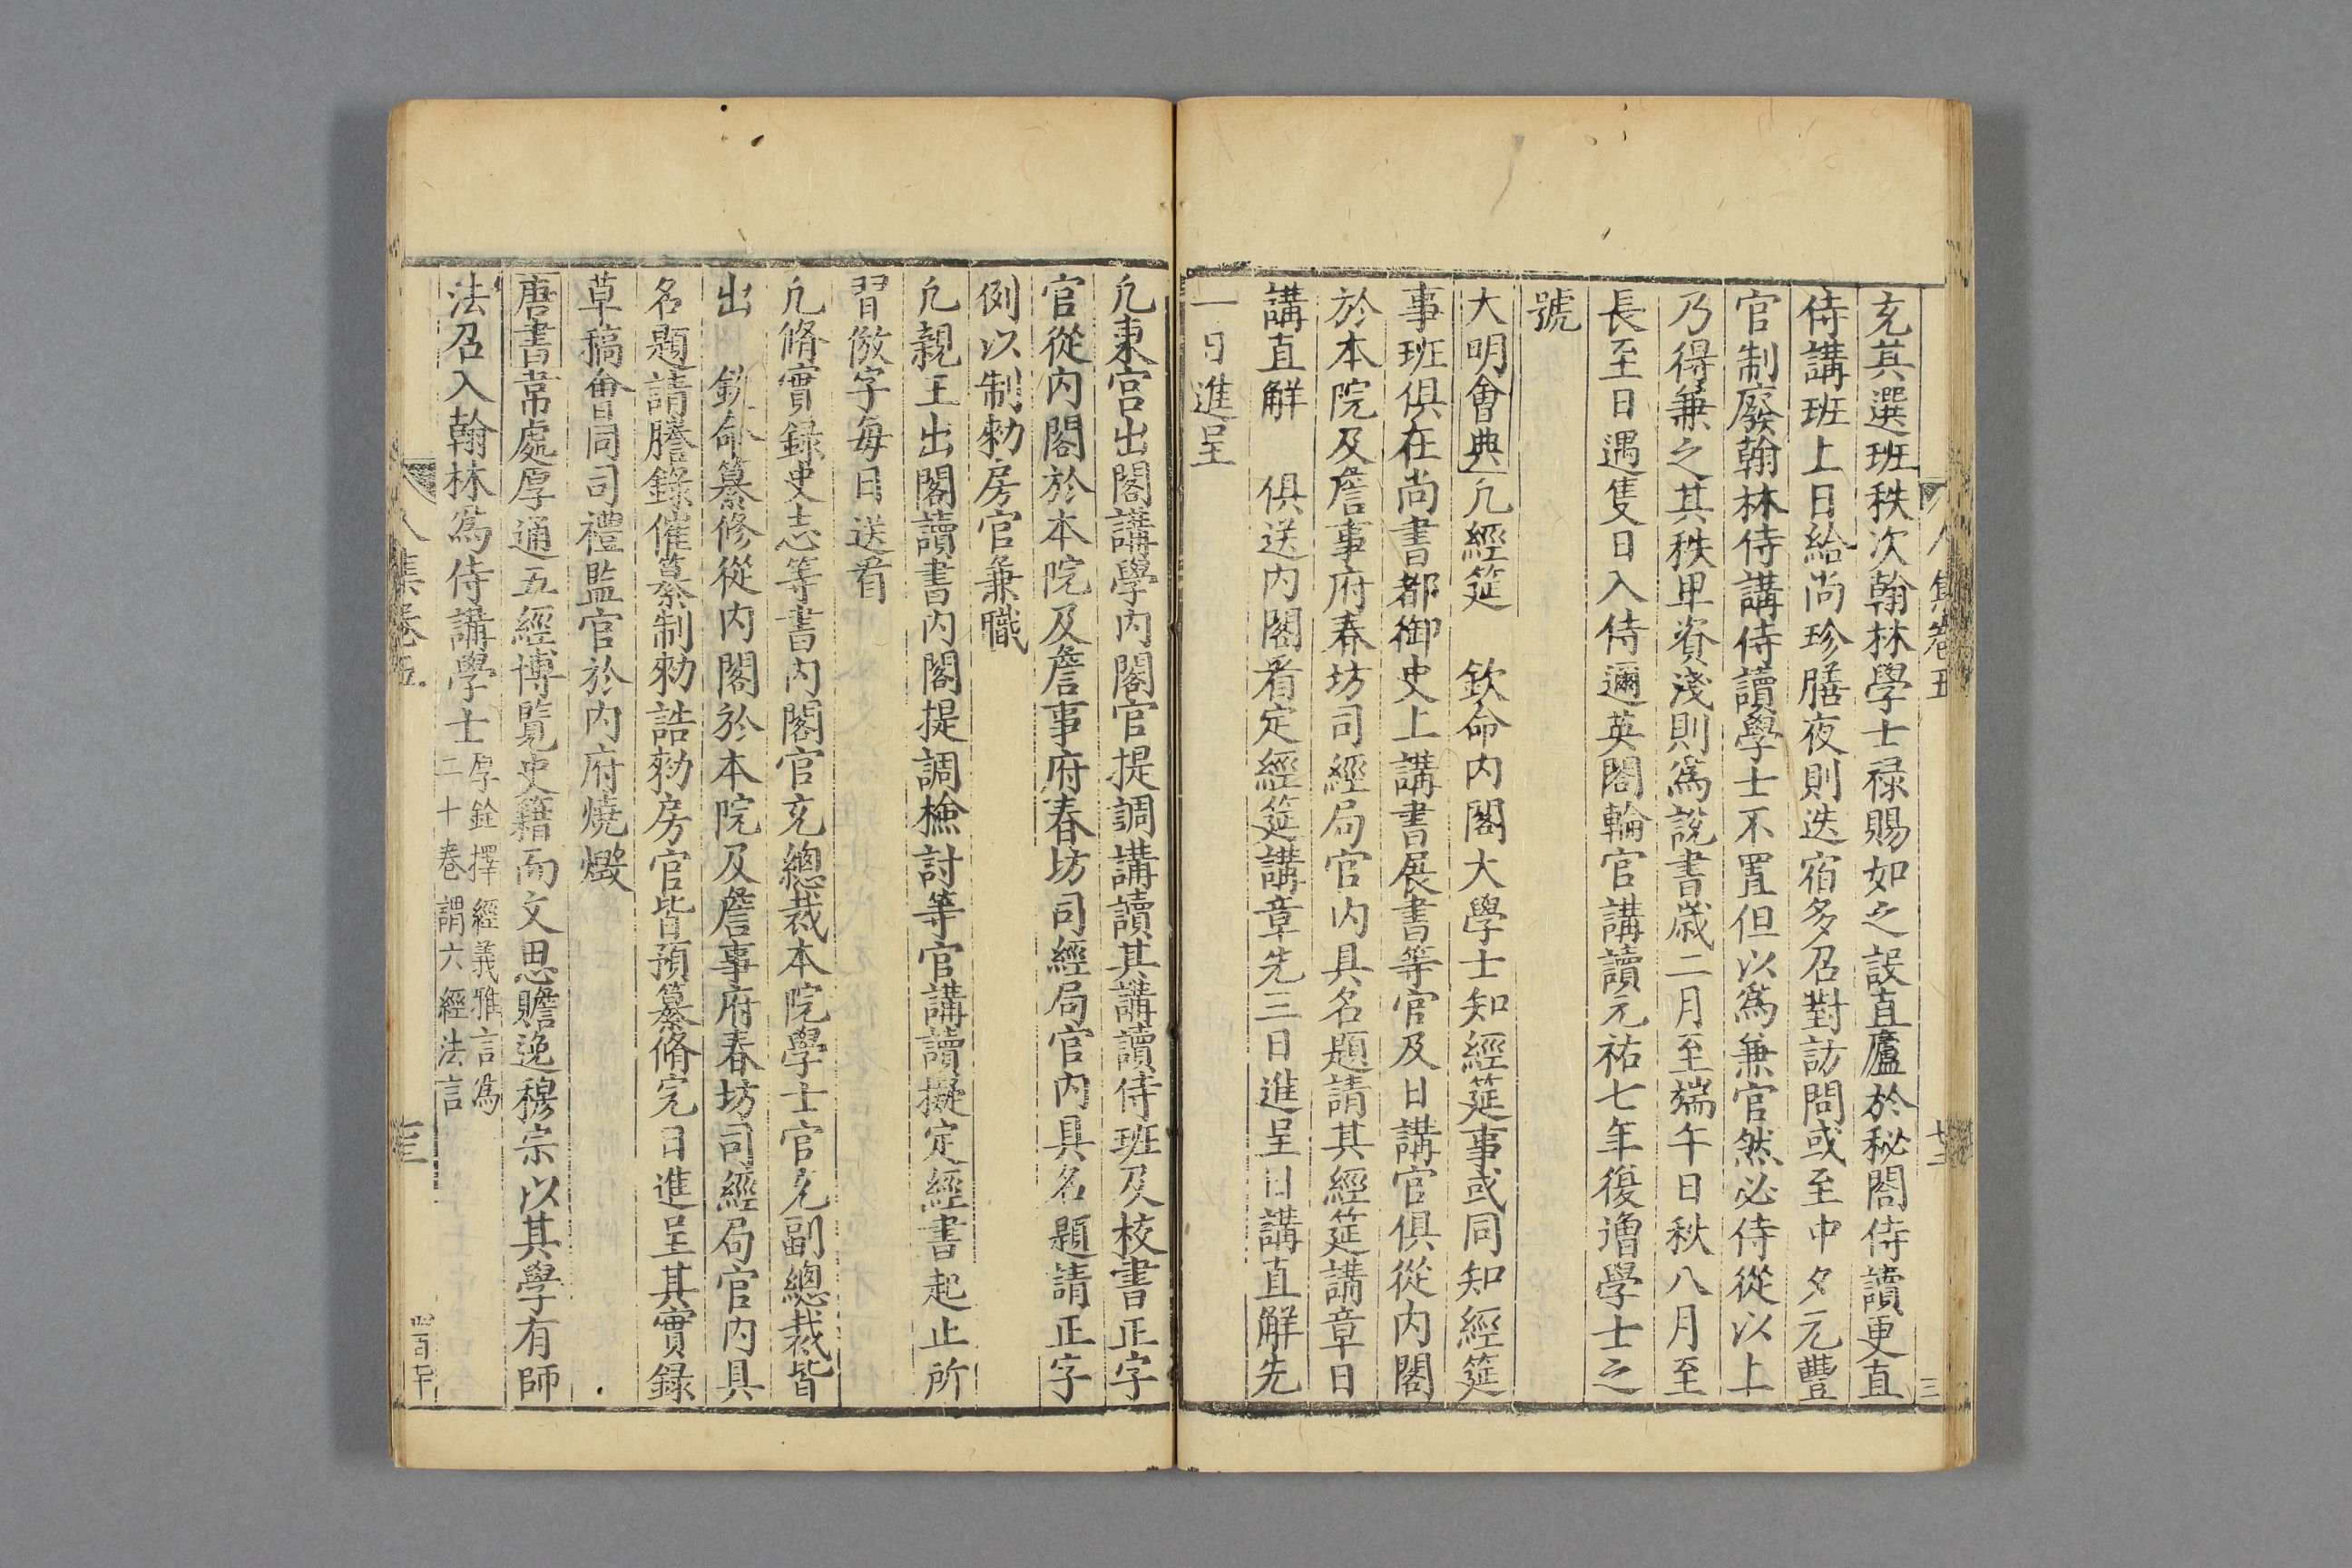 充其選班秩次翰林學士祿賜如之設直廬於秘閣侍讀更直
侍講班上日給尚珍膳夜則迭宿多召對訪問或至中夕元豐
官制廢翰林侍講侍讀學士不置但以為兼官然必侍從以上
乃得兼之其秩卑資淺則為說書歲二月至端午日秋八月至
長至日遇隻日入侍邇英閣輪官講讀元祐七年復增學士之
號
大明會典凡經筵 欽命內閣大學士知經筵事或同知經筵
事班俱在尚書都御史上講書展書等官及日講官俱從內閣
於本院及詹事府春坊司經局官內具名題請其經筵講章日
講直解 俱送內閣看定經筵講章先三日進呈日講直解先
一日進呈
凡東宮出閣講學內閣官提調講讀其講讀侍班及校書正字
官從內閣於本院及詹事府春坊司經局官內具名題請正字
例以制勑房官兼職
凡親王出閣讀書內閣提調檢討等官講讀擬定經書起止所
習倣字每日送看
凡脩實錄史志等書內閣官充總裁本院學士官充副總裁皆
出 欽命纂修從內閣於本院及詹事府春坊司經局官內具
名題請謄錄催纂制勑誥勑房官皆預纂脩完日進呈其實錄
草稿會同司禮監官於內府燒燬
唐書韋處厚通五經博覽史籍而文思贍逸穆宗以其學有師
法召入翰林為侍講學士厚銓擇經義雅言為
二十卷謂六經法言
集卷五
四百